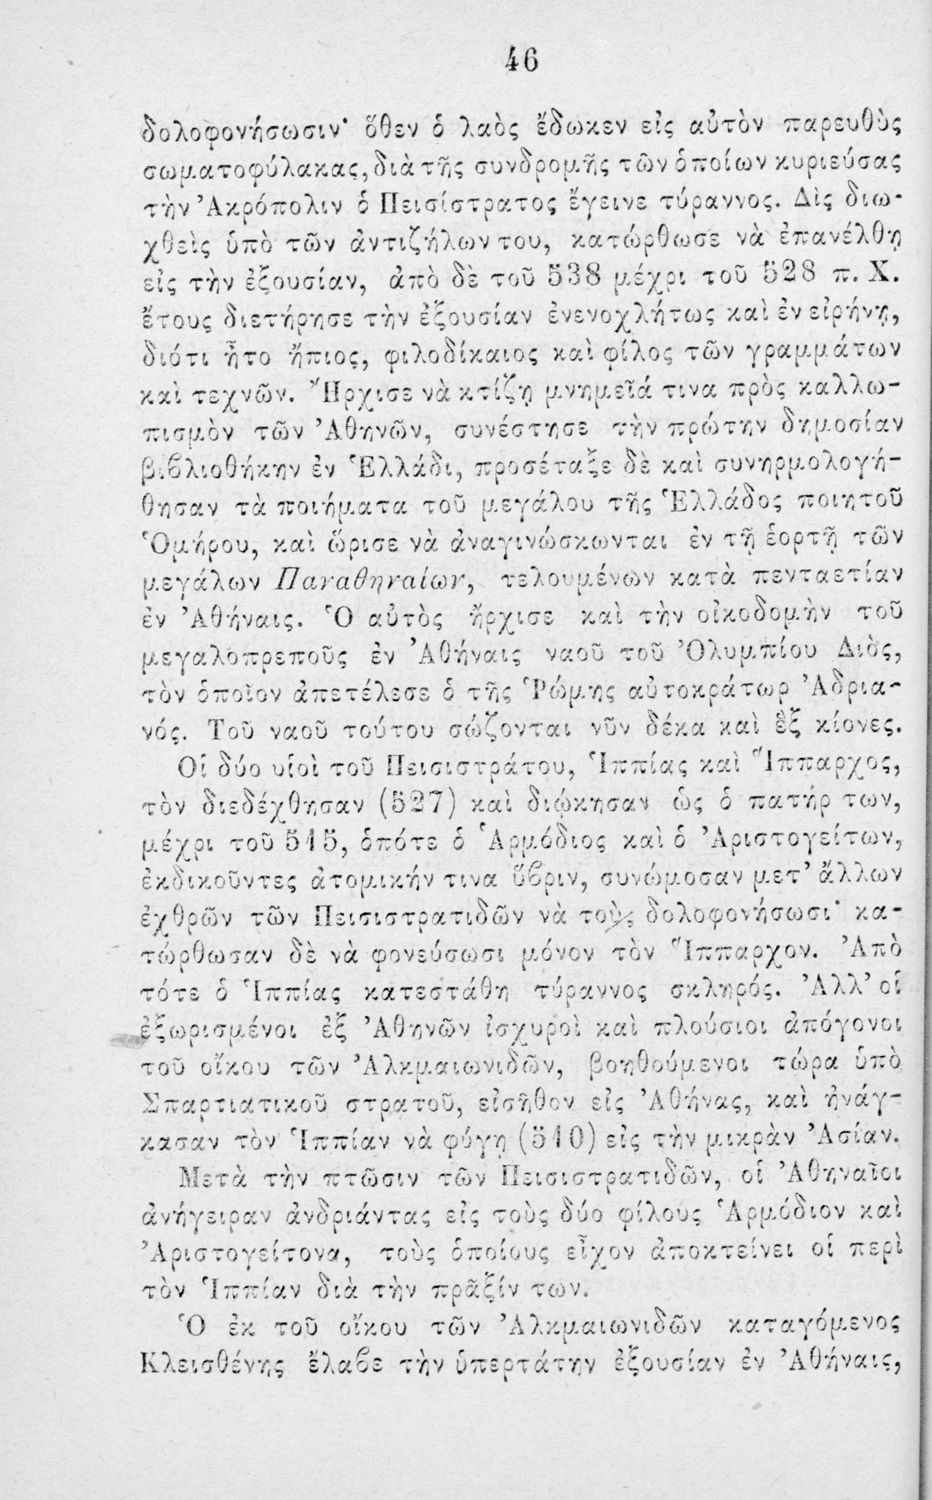 46
δολοφονήσωσιν· ὅθεν ὁ λαὸς ἔδωκεν εἰς αὐτὸν παρευθὺς
σωματοφύλακας, διὰ τῆς συνδρομῆς τῶν ὁποίων κυριεύσας
τὴν Ἀκρόπολιν ὁ Πεισίστρατος ἔγεινε τύραννος. Δὶς διω-
χθεὶς ὑπὸ τῶν ἀντιζήλων του, κατώρθωσε νὰ ἐπανέλθῃ
εἰς τὴν ἐξουσίαν, ἀπὸ δὲ τοῦ 538 μέχρι τοῦ 528 π. Χ.
ἔτους διετήρησε τὴν ἐξουσίαν ἐνενοχλήτως καὶ ἐν εἰρήνῃ,
διότι ἦτο ἤπιος, φιλοδίκαιος καὶ φίλος τῶν γραμμάτων
καὶ τεχνῶν. Ἤρχισε νὰ κτίζῃ μνημεῖά τινα πρὸς καλλω-
πισμὸν τῶν Ἀθηνῶν, συνέστησε τὴν πρώτην δημοσίαν
βιβλιοθήκην ἐν Ἑλλάδι, προσέταξε δὲ καὶ συνηρμολογή-
θησαν τὰ ποιήματα τοῦ μεγάλου τῆς Ἑλλάδος ποιητοῦ
Ὁμήρου, καὶ ὥρισε νὰ ἀναγινώσκωνται ἐν τῇ ἑορτῇ τῶν
μεγάλων Παναθηναίων, τελουμένων κατὰ πενταετίαν
ἐν Ἀθήναις. Ὁ αὐτὸς ἤρχισε καὶ τὴν οἰκοδομὴν τοῦ
μεγαλοπρεποῦς ἐν Ἀθήναις ναοῦ τοῦ Ὀλυμπίου Διός,
τὸν ὁποῖον ἀπετέλεσε ὁ τῆς Ῥώμης αὐτοκράτωρ Ἀδρια-
νός. Τοῦ ναοῦ τούτου σώζονται νῦν δέκα καὶ ἓξ κίονες.
Οἱ δύο υἱοὶ τοῦ Πεισιστράτου, Ἱππίας καὶ Ἵππαρχος,
τὸν διεδέχθησαν (527) καὶ διῴκησαν ὡς ὁ πατήρ των,
μέχρι τοῦ 515, ὁπότε ὁ Ἁρμόδιος καὶ ὁ Ἀριστογείτων,
ἐκδικοῦντες ἀτομικήν τινα ὕβριν, συνώμοσαν μετ’ ἄλλων
ἐχθρῶν τῶν Πεισιστρατιδῶν νὰ τοὺς δολοφονήσωσι· κα-
τώρθωσαν δὲ νὰ φονεύσωσι μόνον τὸν Ἵππαρχον. Ἀπὸ
τότε ὁ Ἱππίας κατεστάθη τύραννος σκληρός. Ἀλλ’ οἱ
ἐξωρισμένοι ἐξ Ἀθηνῶν ἰσχυροὶ καὶ πλούσιοι ἀπόγονοι
τοῦ οἴκου τῶν Ἀλκμαιωνιδῶν, βοηθούμενοι τώρα ὑπὸ
Σπαρτιατικοῦ στρατοῦ, εἰσῆθον εἰς Ἀθήνας, καὶ ἠνάγ-
κασαν τὸν Ἱππίαν νὰ φύγῃ (510) εἰς τὴν μικρὰν Ἀσίαν.
Μετὰ τὴν πτῶσιν τῶν Πεισιστρατιδῶν, οἱ Ἀθηναῖοι
ἀνήγειραν ἀνδριάντας εἰς τοὺς δύο φίλους Ἁρμόδιον καὶ
Ἀριστογείτονα, τοὺς ὁποίους εἶχον ἀποκτείνει οἱ περὶ
τὸν Ἱππίαν διὰ τὴν πρᾶξίν των.
Ὁ ἐκ τοῦ οἴκου τῶν Ἀλκμαιωνιδῶν καταγόμενος
Κλεισθένης ἔλαβε τὴν ὑπερτάτην ἐξουσίαν ἐν Ἀθήναις,